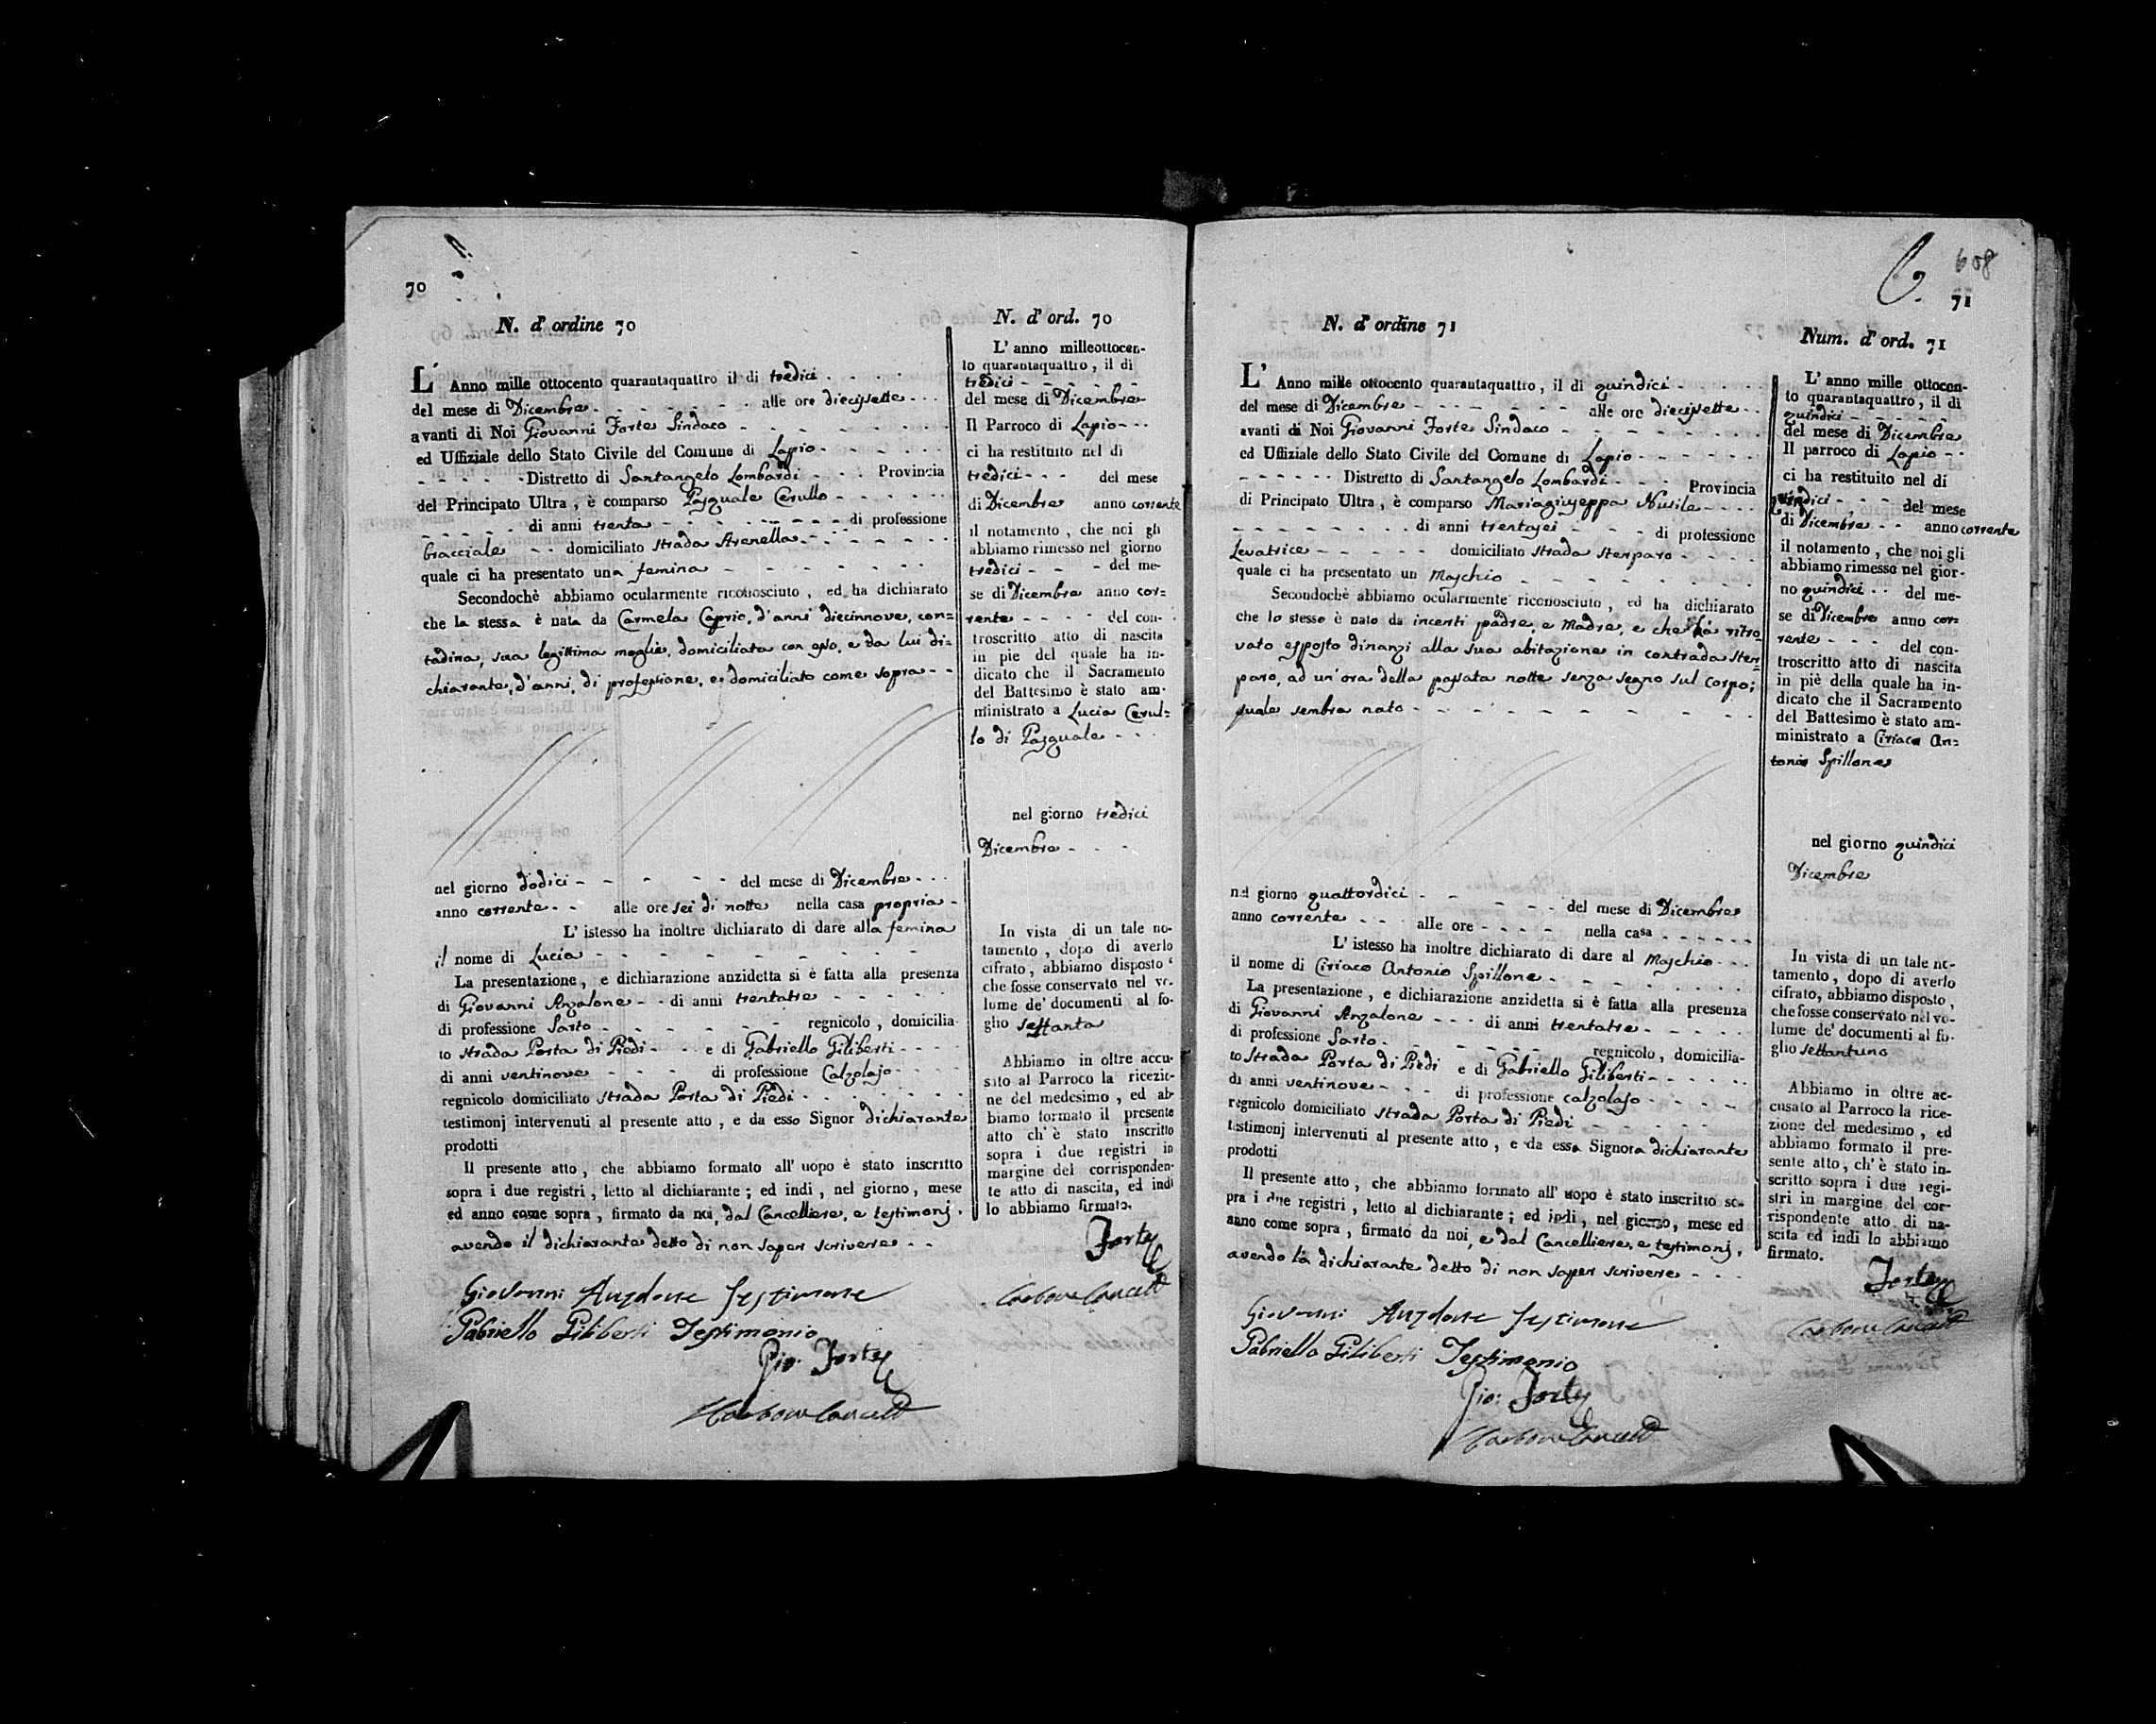 70
N. d' ordine 70
L' Anno mille ottocento quarantaquattro il di tredici
del mese di Dicembre alle ore diecisette
avanti di Noi Giovanni Forte Sindaco
ed Uffiziale dello Stato Civile del Comune di Lapio
Distretto di Santangelo Lombardi Provincia
del Principato Ultra, è comparso Pasquale Cerullo
di anni trenta di professione
bracciale domiciliato strada Arenella
quale ci ha presentato una femina
Secondochè abbiamo ocularmente riconosciuto, ed ha dichiarato
che la stessa è nata da Carmela Caprio, d'anni diecinnove, con=
tadina, sua legittima moglie, domiciliata con esso, e da lui di=
chiarante, d'anni, di professione, e domiciliato come sopra
nel giorno dodici del mese di Dicembre
anno corrente alle ore sei di notte nella casa propria
L' istesso ha inoltre dichiarato di dare alla femina
il nome di Lucia
La presentazione, e dichiarazione anzidetta si è fatta alla presenza
di Giovanni Anzalone di anni trentatre
di professione Sarto regnicolo, domicilia-
to strada Porta di Piedi e di Gabriello Giliberti
di anni ventinove di professione Calzolajo
regnicolo domiciliato strada Porta di Piedi
testimonj intervenuti al presente atto, e da esso Signor dichiarante
prodotti
Il presente atto, che abbiamo formato all' uopo è stato inscritto
sopra i due registri, letto al dichiarante; ed indi, nel giorno, mese
ed anno come sopra, firmato da noi, dal Cancelliere, e testimonj,
avendo il dichiarante detto di non saper scrivere
Giovanni Anzalone Testimone
Gabriello Giliberti Testimonio
Gio: Forte
N. d' ord. 70
L' anno milleottocen-
to quarantaquattro, il di
tredici
del mese di Dicembre
Il Parroco di Lapio
ci ha restituito nel di
tredici del mese
di Dicembre anno corrente
il notamento, che noi gli
abbiamo rimesso nel giorno
tredici del me-
se di Dicembre anno cor=
rente del con-
troscritto atto di nascita
in pie del quale ha in-
dicato che il Sacramento
del Battesimo è stato am-
ministrato a Lucia Cerul=
lo di Pasquale
nel giorno tredici
Dicembre
In vista di un tale no-
tamento, dopo di averlo
cifrato, abbiamo disposto
che fosse conservato nel vo-
lume de' documenti al fo-
glio settanta
Abbiamo in oltre accu-
sato al Parroco la ricezio-
ne del medesimo, ed ab-
biamo formato il presente
atto ch' è stato inscritto
sopra i due registri in
margine del corrisponden-
te atto di nascita, ed indi
lo abbiamo firmato.
Forte
608
71
N. d' ordine 71
L' Anno mille ottocento quarantaquattro, il di quindici
del mese di Dicembre alle ore diecisette
avanti di Noi Giovanni Forte Sindaco
ed Uffiziale dello Stato Civile del Comune di Lapio
Distretto di Santangelo Lombardi Provincia
di Principato Ultra, è comparso Mariagiuseppa Nusile
di anni trentasei di professione
Levatrice domiciliato strada Sterparo
quale ci ha presentato un Maschio
Secondochè abbiamo ocularmente riconosciuto, ed ha dichiarato
che lo stesso è nato da incerti padre, e Madre, e che ha ritro=
vato esposto dinanzi alla sua abitazione in contrada Ster=
paro, ad un'ora della passata notte senza segno sul corpo;
quale sembra nato
nel giorno quattordici del mese di Dicembre
anno corrente alle ore nella casa
L' istesso ha inoltre dichiarato di dare al Maschio
il nome di Ciriaco Antonio Spillone
La presentazione, e dichiarazione anzidetta si è fatta alla presenza
di Giovanni Anzalone di anni trentatre
di professione Sarto regnicolo, domicilia-
to strada Porta di Piedi e di Gabriello Giliberti
di anni ventinove di professione calzolajo
regnicolo domiciliato strada Porta di Piedi
testimonj intervenuti al presente atto, e da essa Signora dichiarante
prodotti
Il presente atto, che abbiamo formato all' uopo è stato inscritto so-
pra i due registri, letto al dichiarante; ed indi, nel giorno, mese ed
anno come sopra, firmato da noi, e dal Cancelliere, e testimonj,
avendo la dichiarante detto di non saper scrivere
Giovanni Anzalone Testimone
Gabriello Giliberti Testimonio
Gio: Forte
Num. d' ord. 71
L' anno mille ottocen-
to quarantaquattro, il di
quindici
del mese di Dicembre
Il parroco di Lapio
ci ha restituito nel di
quindici del mese
di Dicembre anno corrente
il notamento, che noi gli
abbiamo rimesso nel gior-
no quindici del me-
se di Dicembre anno cor=
rente del con-
troscritto atto di nascita
in piè della quale ha in-
dicato che il Sacramento
del Battesimo è stato am-
ministrato a Ciriaco An=
tonio Spillone
nel giorno quindici
Dicembre
In vista di un tale no-
tamento, dopo di averlo
cifrato, abbiamo disposto,
che fosse conservato nel vo-
lume de' documenti al fo-
glio settantuno
Abbiamo in oltre ac-
cusato al Parroco la rice-
zione del medesimo, ed
abbiamo formato il pre-
sente atto, ch' è stato in-
scritto sopra i due regi-
stri in margine del cor-
rispondente atto di na-
scita ed indi lo abbiamo
firmato.
Forte